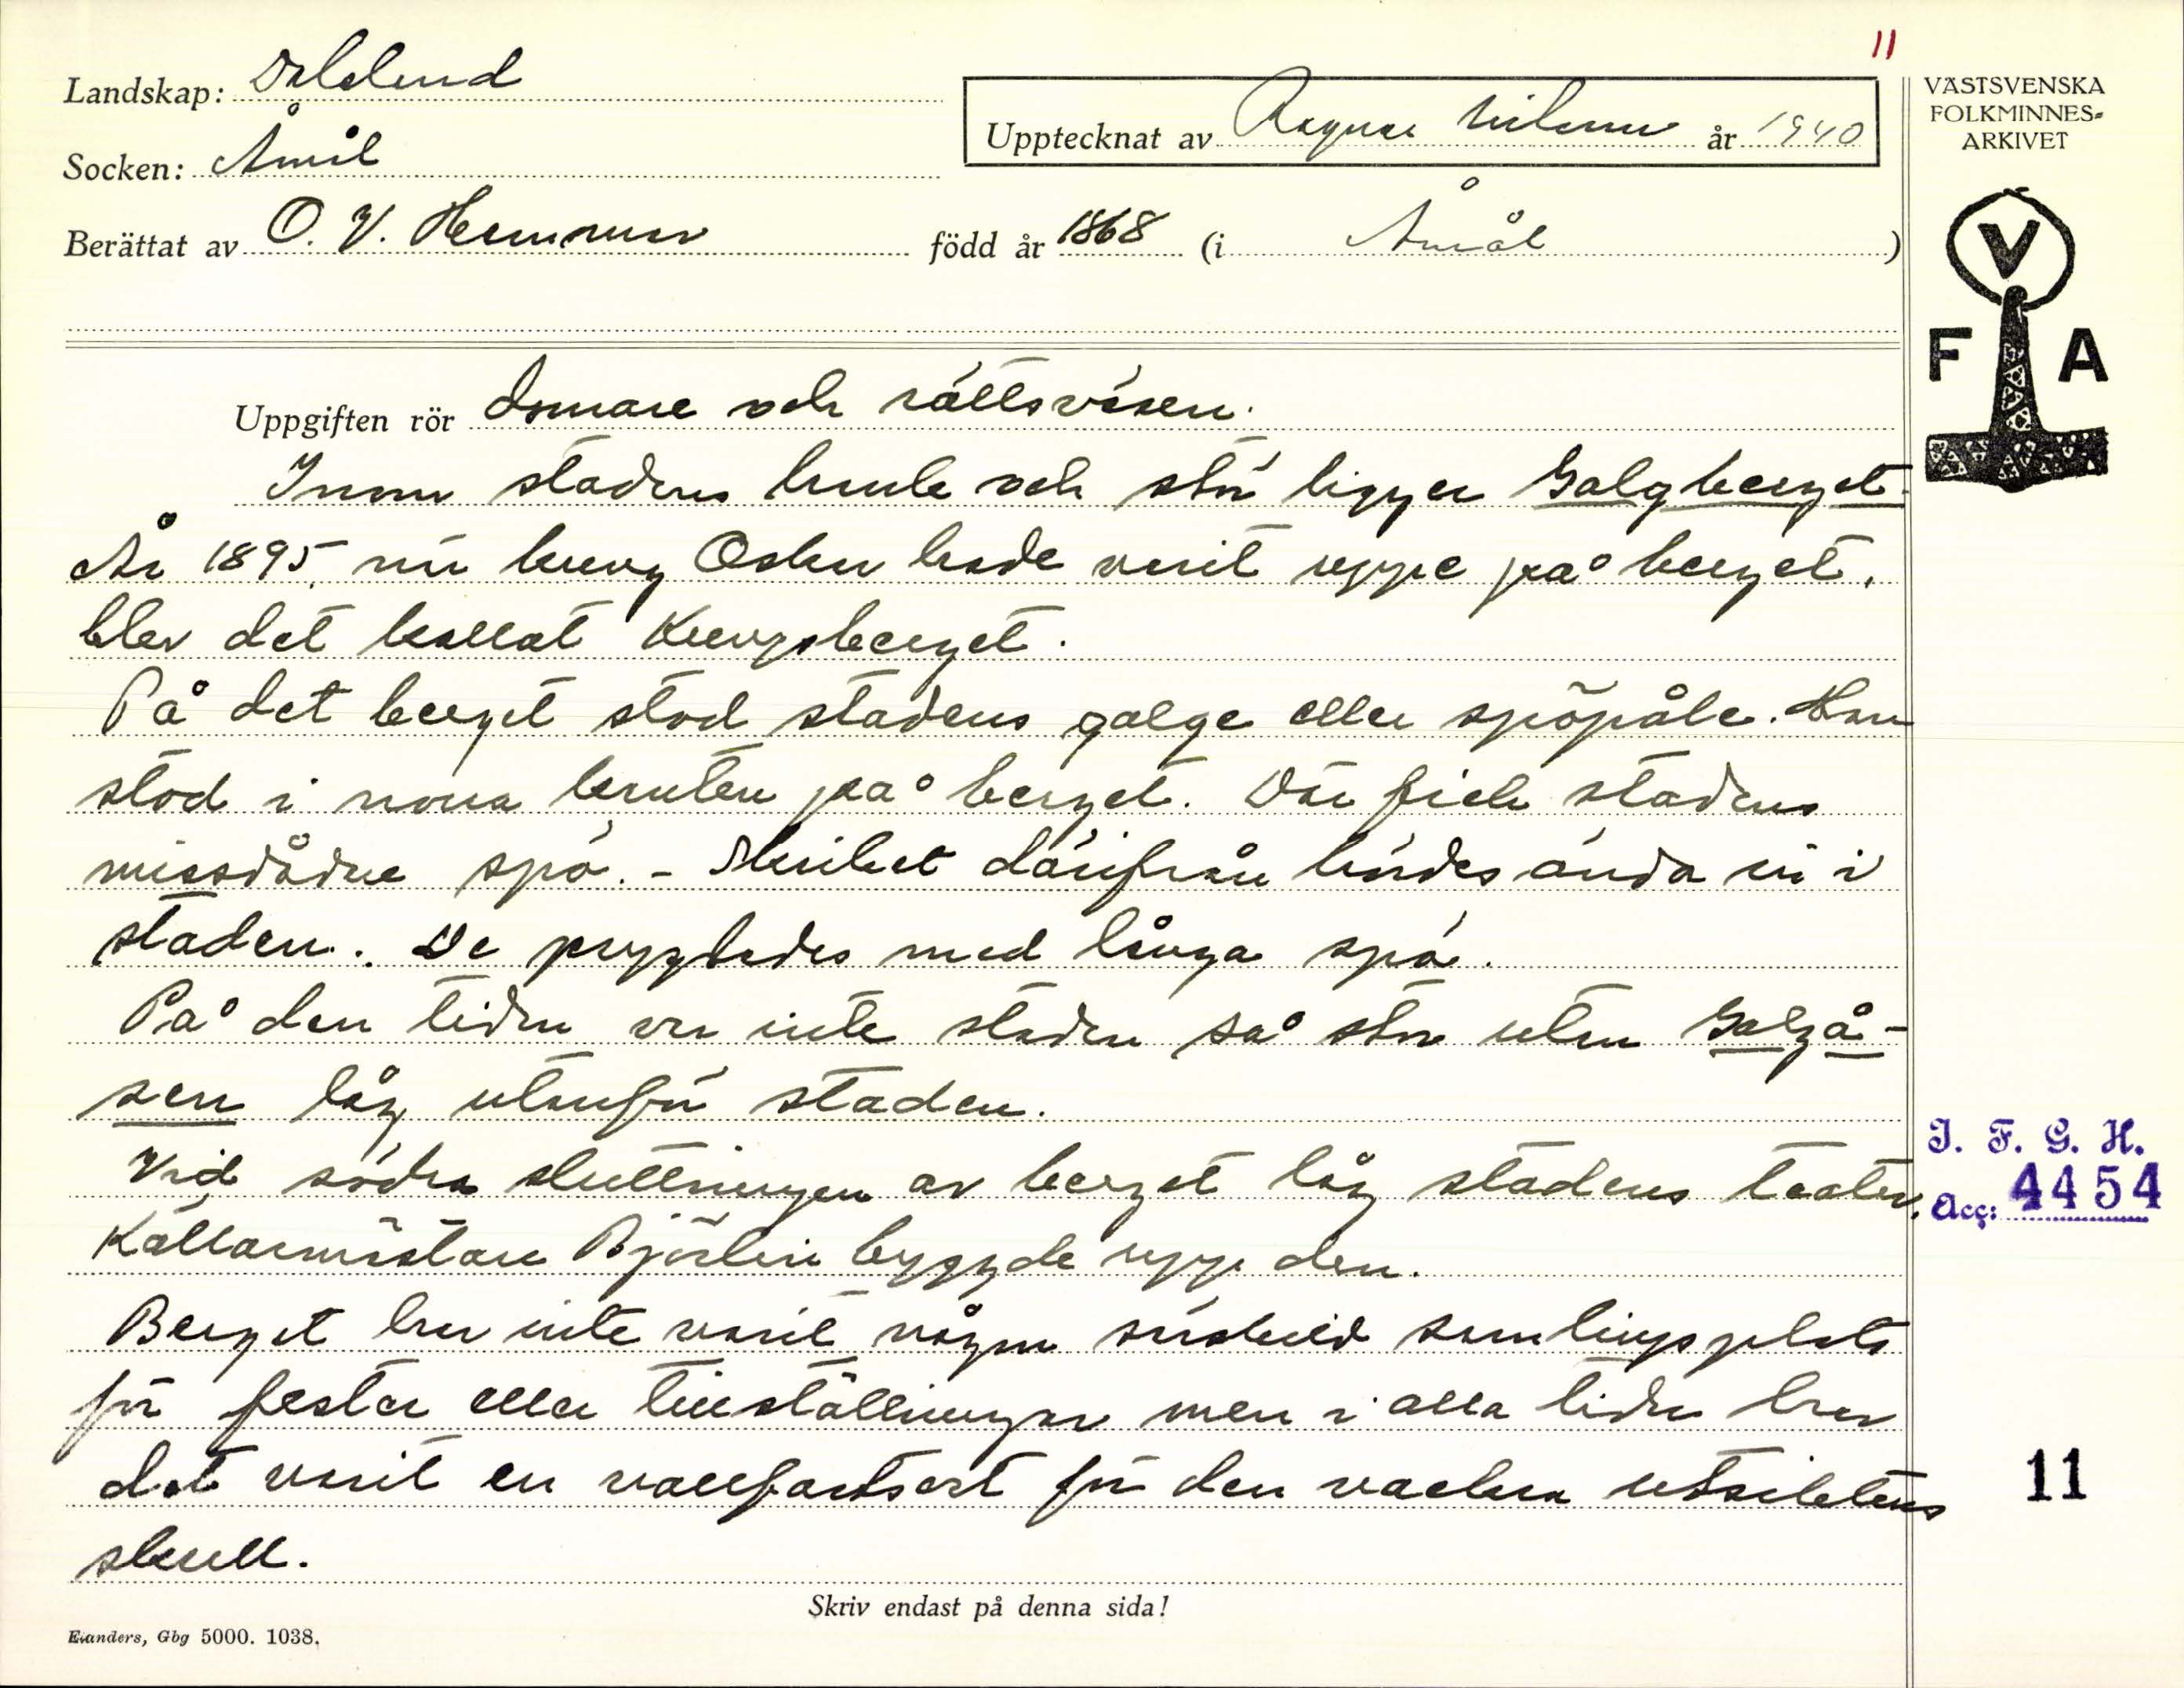 11
Landskap: Dalsland
Socken: Åmål
Upptecknat av Ragnar Nilsson år 1940
Berättat av O. V. född år 1868 (i Åmål)
VÄSTSVENSKA
FOLKMINNES-
ARKIVET
V
F A
Uppgiften rör Domare och rättsväsen.
Inom stadens hank och stör ligger Galgberget.
År 1895, när kung Oskar hade varit uppe på berget,
blev det kallat Kungsberget.
På det berget stod stadens galge eller spöpåle. Han
stod i norra kanten på berget. Där fick stadens
missdådare spö. - Skriket därifrån hördes ända in i
staden. De pryglades med långa spö.
På den tiden var inte staden så stor utan Galgå-
sen låg utanför staden.
Vid södra sluttningen av berget låg stadens teater.
Källarmästare Björlin byggde upp den.
Berget har inte varit någon särskild samlingsplats
för fester eller tillställningar men i alla tider har
det varit en vallfartsort för den vackra utsiktens
skull.
J. F. G. H.
Acc: 4454
11
Skriv endast på denna sida!
Elanders, Gbg 5000. 1038.